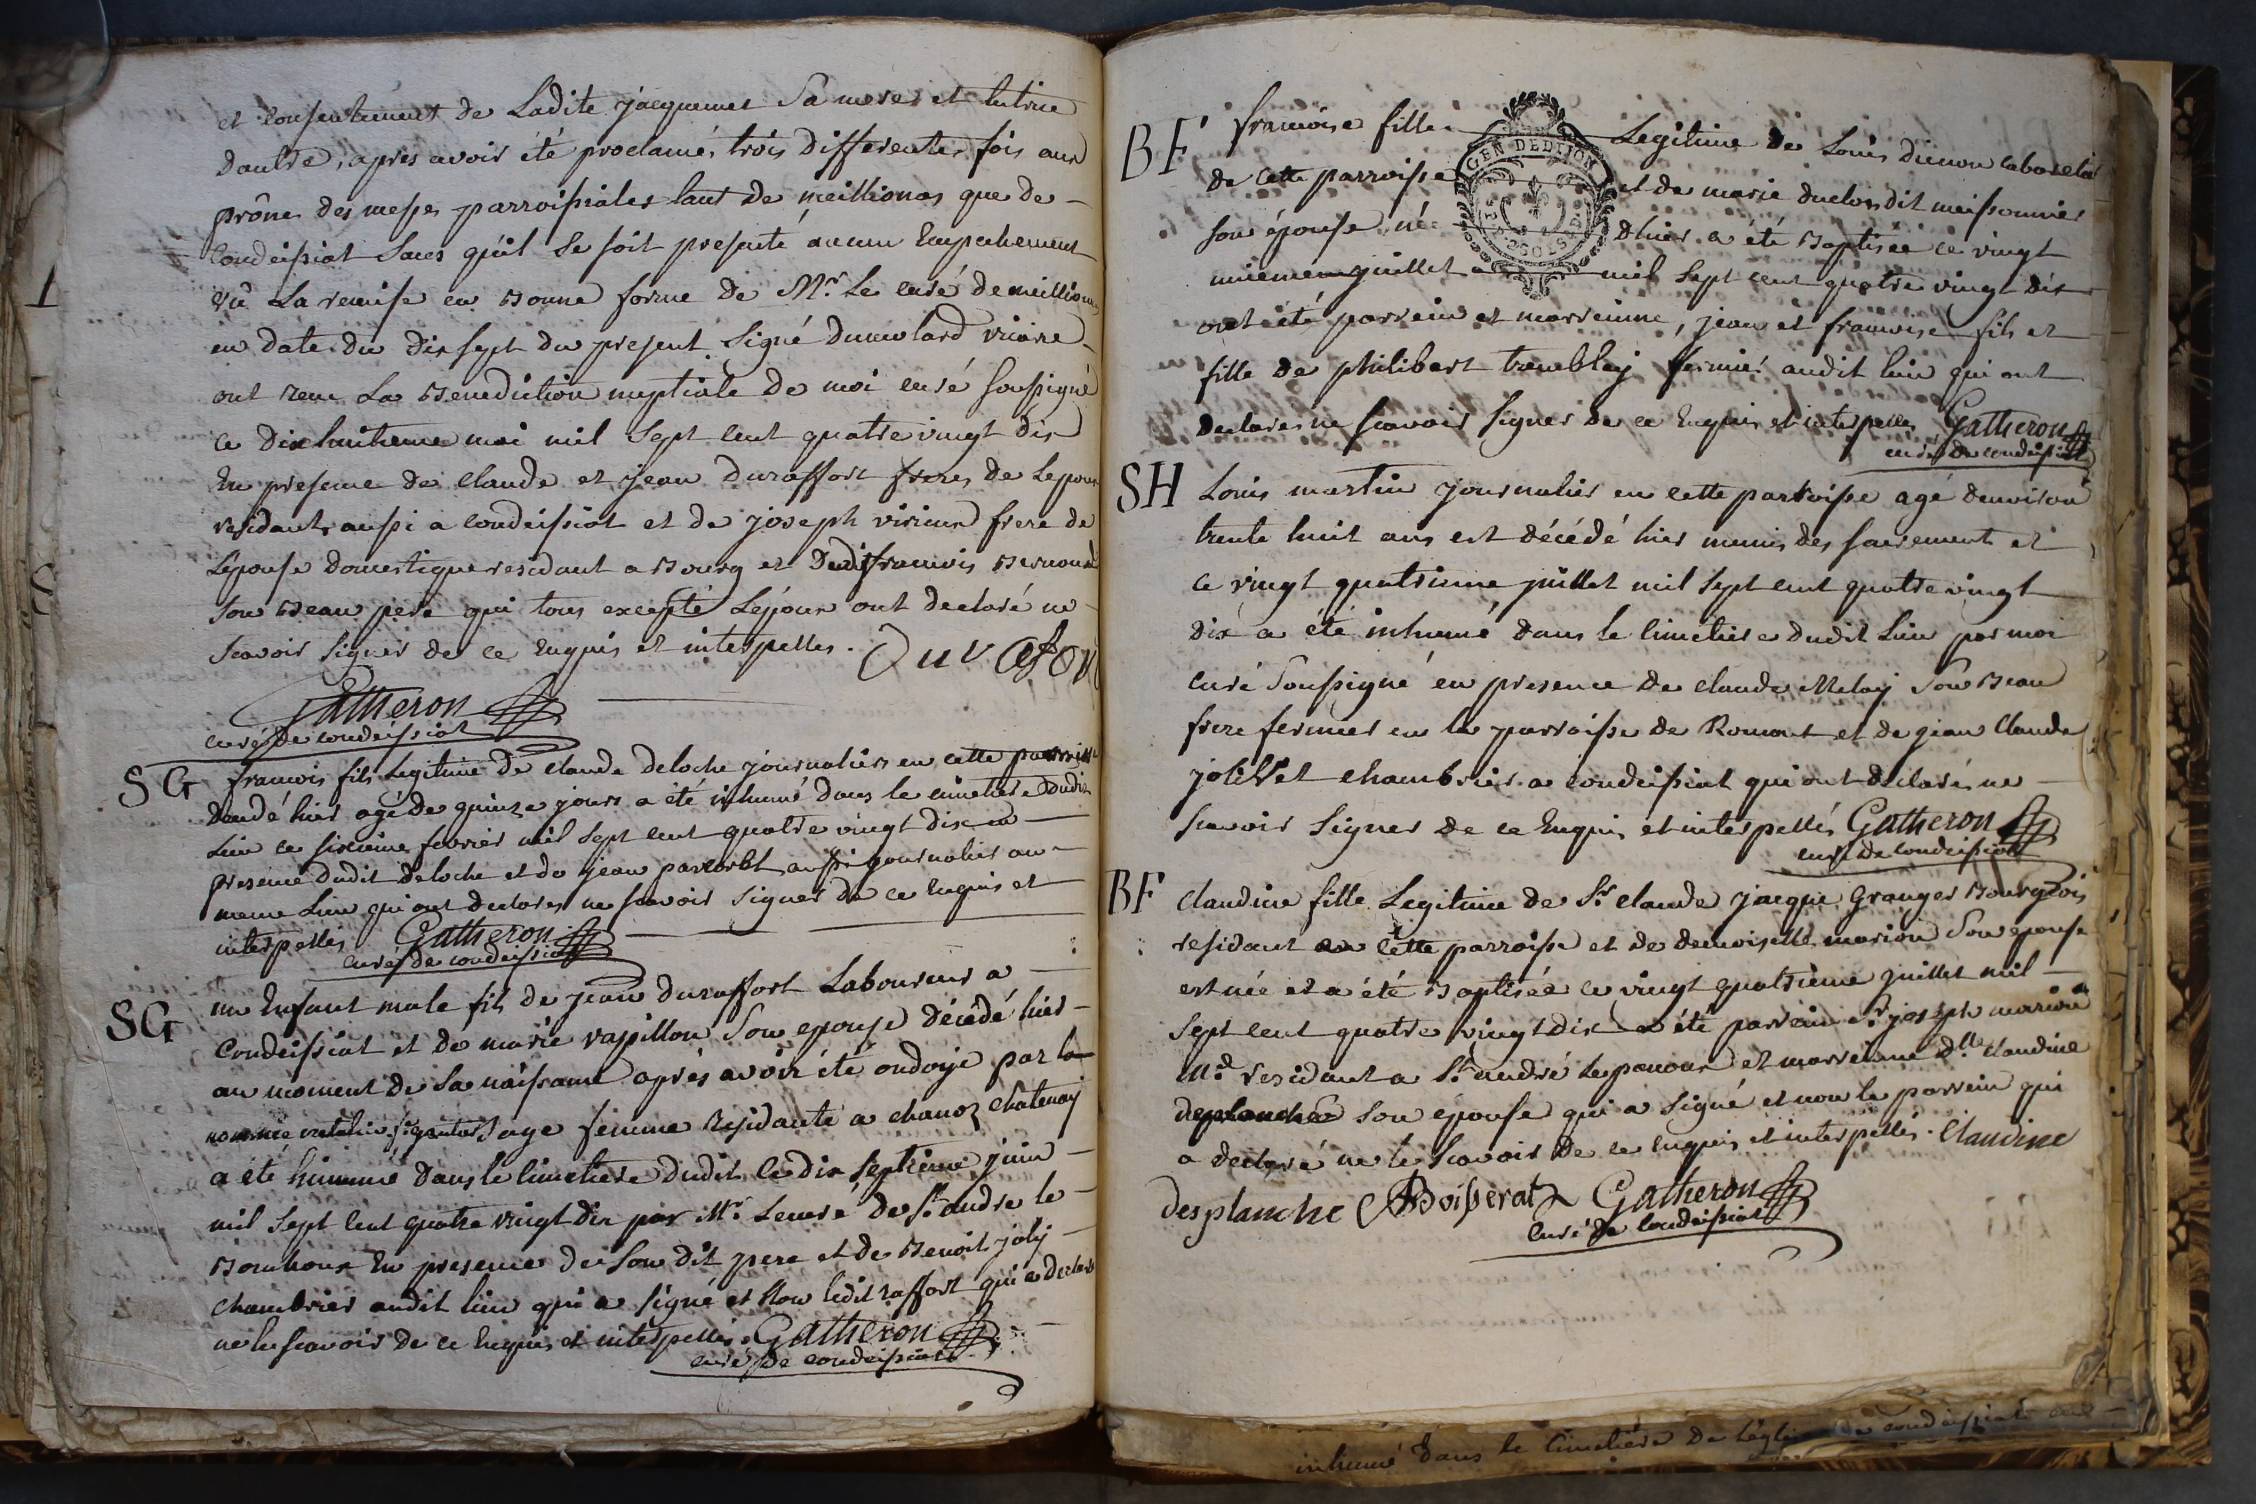 et consentement de Ladite jacquemet Sa mere et tutrice
dautre, apres avoir été proclamés trois differentes fois aux
prônes des messes parroissiales tant de meillionas que de
Condeissiat Sans qu'il se soit presenté aucun Empechement
vû La remise en bonne forme de Mr. Le curé de meillionas
en date du dix sept du present Signé dumolard vicaire
ont recu La Benediction nuptiale de moi curé soussigné
ce dixhuitieme mai mil Sept cent quatre vingt dix
En presence de Claude et jean Duraffort freres de Lepoux
residants aussi a condeissiat et de joseph frere de
Lepouse domestique residant a Bourg et Dudit francois
Son Beau pere qui tous excepté Lepoux ont declaré ne
Scavoir Signer de ce Enquis et interpelles.
Gatheron
curé de condeissiat
SG francois fils Legitime de claude deloche journalier en cette parroisse
decedé hier agé de quinze jours a été inhumé dans le cimetiere dudit
Lieu ce sixieme fevrier mil sept cent quatre vingt dix en
presence dudit deloche et de jean aussi journalier au
meme Lieu qui ont declarés ne scavoir signer de ce Enquis et
interpellés Gatheron
curé de condeissiat
SG un Enfant male fils de jean duraffort Laboureur a
Condeissiat et de marie vapillon Son epouse décédé hier
au moment de Sa naissance après avoir été ondoyé par la
nommée Sage femme Residante a chanoz chatenay
a été humumé dans le cimetiere dudit le dix septieme juin
mil Sept cent quatre vingt dix par Mr. Lecuré de St. andre le
Bouchoux En presence de Son dit pere et de Benoit joly
chambrier audit lieu qui a signé et Non ledit raffort qui a declaré
ne le scavoir de ce Enquis et interpellés. Gatheron
curé de condeissiat
BF francoise fille Legitime de Louis
de cette parroisse et de marie duclos dit meissonnier
son épouse née dhier a été Baptisée ce vingt
juillet mil sept cent quatre vingt dix
ont été parrein et marreinne, jean et francoise fils et
fille de philibert tremblay fermier audit lieu qui ont
declarés ne scavoir signer de ce Enquis et interpellés Gatheron
curé de condeissiat
GEN DE DIJON
SH Louis martin journalier en cette parroisse agé denviron
trente huit ans est décédé hier munis des sacrements et
ce vingt quatrieme juillet mil sept cent quatre vingt
dix a été inhumé dans le cimetiere dudit Lieu par moi
curé Soussigné en presence de claude Melay Son Beau
frere fermier en la parroisse de Romans et de jean Claude
jolivet chambrier a condeissiat qui ont declarés ne
scavoir Signer de ce Enquis et interpellés Gatheron
curé de condeissiat
BF Claudine fille Legitime de Sr. claude jacque Granger Bourgeois
residant en cette parroisse et de demoiselle marion Son epouse
est née et a été Baptisée ce vingt quatrieme juillet mil
Sept cent quatre vingt dix a été parrein Sr. joseph marion
Md. residant a St. andré Lepanoux et marreinne dlle claudine
deplanche Son epouse qui a signé et non le parrein qui
a declaré ne le Scavoir de ce Enquis et interpellés. Claudine
desplanche Boisserat Gatheron
curé de Condeissiat
inhumé dans le cimetiere de Leglise de condeissiat